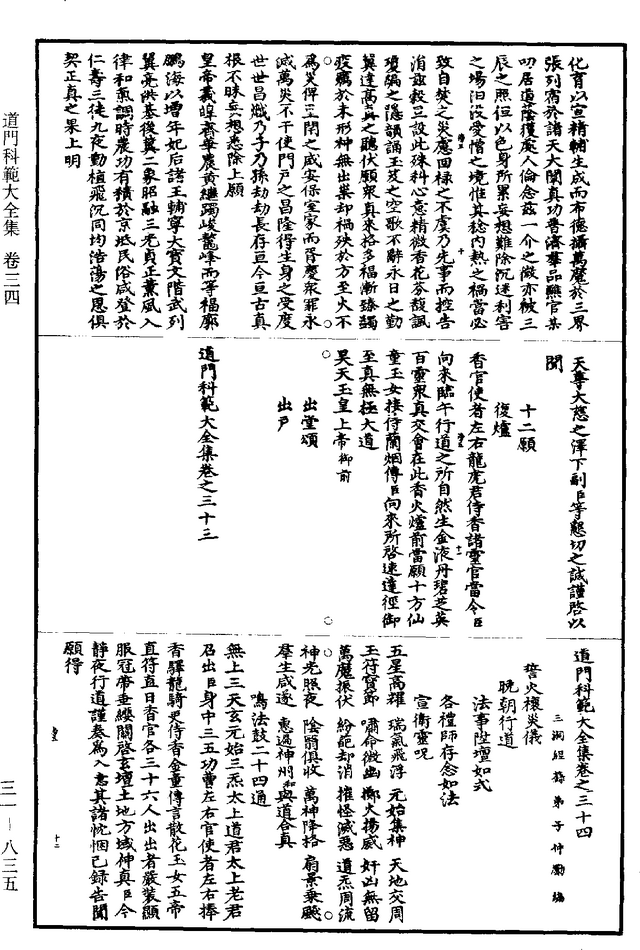 道門科範大全集 卷三四
化育以宣精輔生成而布德攝萬魔於三界
張列宿於諸天大闡真功普濟群品醮官某
叨居道蔭獲處人倫念茲一介之微亦被三
辰之照但以色身所累妄想難除沉迷利害
之場汨沒愛憎之境惟其稔內熱之禍當必
致自焚之災應回祿之不虞乃先事而控告
消茲穀旦設此殊科心意精微香花芬馥諷
瓊編之隱韻誦玉芨之空歌不辭永日之勤
冀達高真之聽伏願眾真來格多福漸臻蠲
疫癘於未形神無出祟却禍殃於方至火不
為災俾
閈之咸安保室家而胥慶眾罪永
滅萬災不干使門戶之昌隆得生身之受度
世世昌熾乃子乃孫劫劫長存亘今亘古真
根不昧妄想悉除上願
皇帝羲皥齊華農黃繼躅峻鼇峰而等福廓
鵬海以增年妃后諸王輔寧大寶文階武列
翼亮洪基後冀二象昭融三光貞正薰風入
律和氣調時農功有積於京坻民俗咸登於
仁壽三徒九夜動植飛沉同均浩蕩之恩俱
契正真之果上明
天尊大慈之澤下副臣等懇切之誠謹啓以
聞
十二願
復爐
香官使者左右龍虎君侍香諸靈官當令臣
向來臨午行道之所自然生金液丹碧芝英
百靈眾真交會在此香火爐前當願十方仙
童玉女接侍蘭烟傳臣向來所啓速達徑御
至真無極大道
昊天玉皇上帝御前
出堂頌
出戶
道門科範大全集卷之三十三
道門科範大全集卷之三十四
三洞經籙弟子仲勵編
誓火禳災儀
晚朝行道
法事陞壇如式
各禮師存念如法
宣衛靈呪
五星高耀 瑞氣飛浮 元始集神 天地交周
玉符寶節 嘯命微幽 擲火揚威 奸凶無留
萬魔振伏 紛葩却消 摧怪滅惡 道炁周流
神光照夜 陰翳俱收 萬神降格 扇景乘飈
群生咸遂 惠過神州 與道合真
鳴法鼓二十四通
無上三天玄元始三炁太上道君太上老君
召出臣身中三五功曹左右官使者左右捧
香驛龍騎吏侍香金童傳言散花玉女五帝
直符直日香官各三十六人出出者嚴裝顯
服冠帶垂纓關啓玄壇土地方域神真臣今
靜夜行道謹奏為入意其諸忱悃已録告聞
願得
三一－八三五